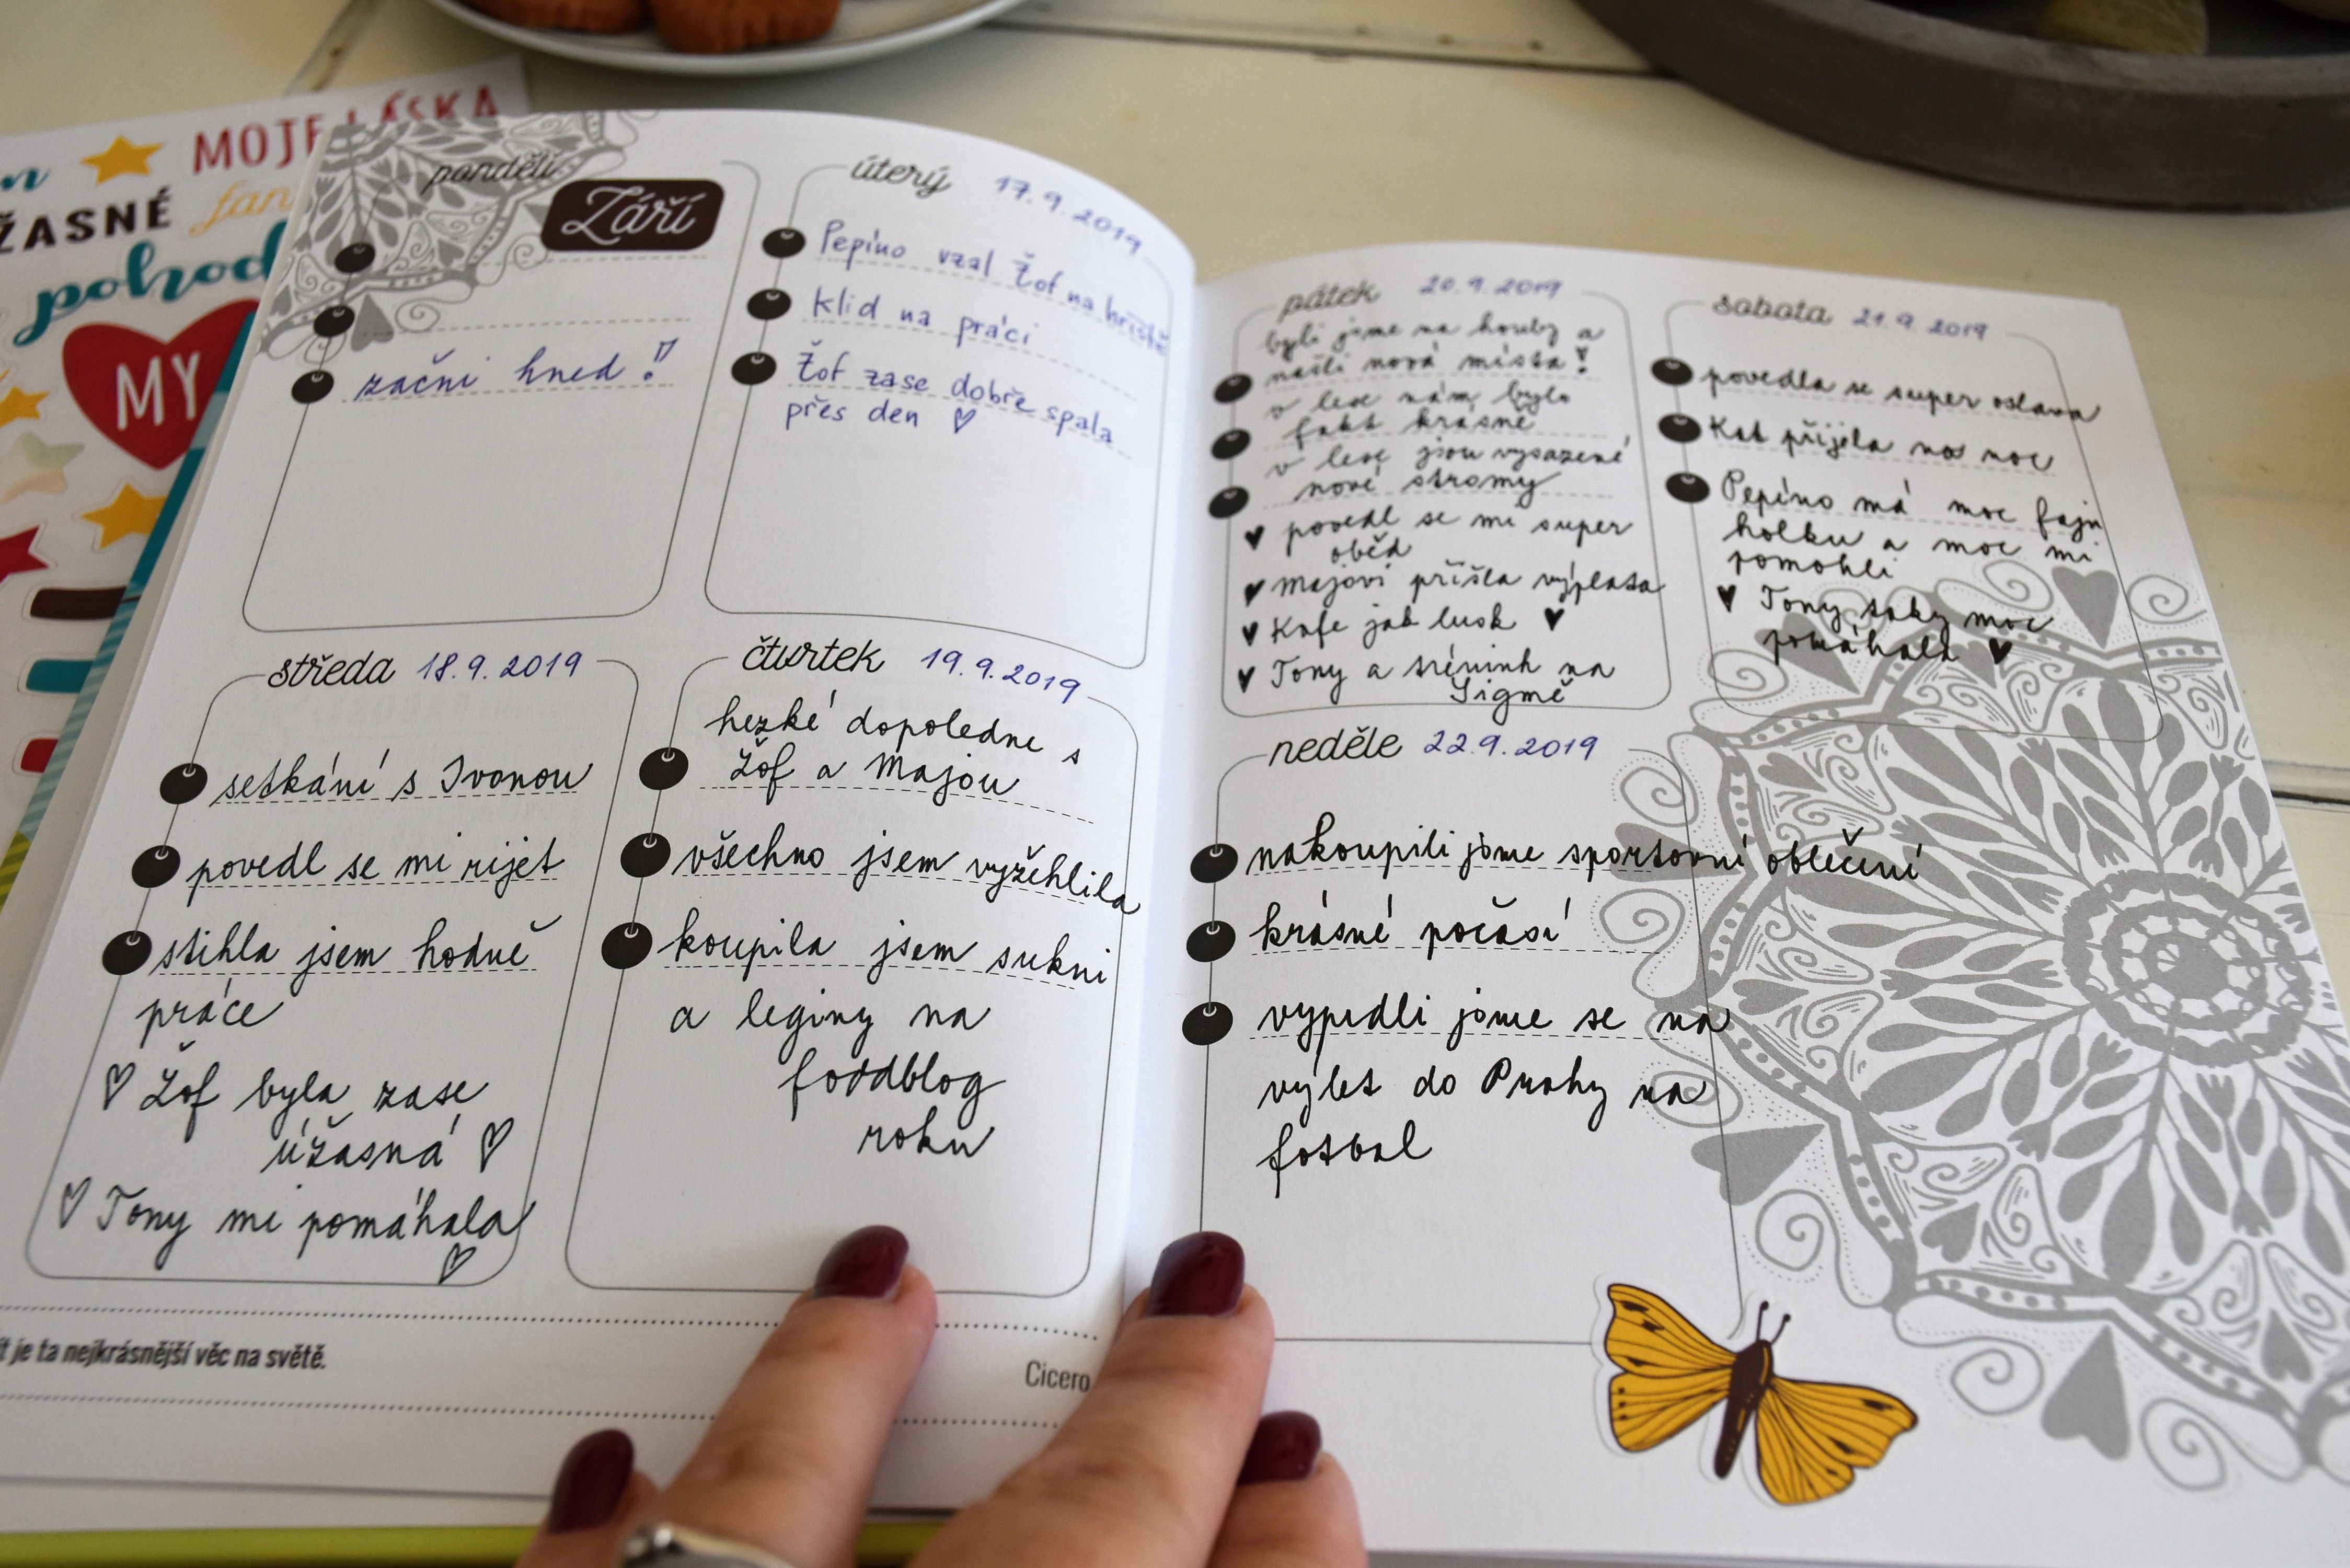 MOJE LÁSKA
ŽASNÉ
pohod
MY
pondělí
Září
začni hned!
úterý 17.9.2019
Pepino vzal Žof na hřiště
Klid na práci
Žof zase dobře spala
přes den
středa 18.9.2019
setkání s Ivonou
povedl se mi rijet
stihla jsem hodně
práce
Žof byla zase
úžasná
Tony mi pomáhala
čtvrtek 19.9.2019
hezké dopoledne s
Žof a Majou
všechno jsem vyžehlila
koupila jsem sukni
a leginy na
foodblog
roku
t je ta nejkrásnější věc na světě.
Cicero
pátek 20.9.2019
byli jsme na houby a
našli nová místa!
v lese nám bylo
fakt krásně
v lese jsou vysazené
nové stromy
povedl se mi super
oběd
Majovi přišla výplata
Kafe jak lusk
Tony a trénink na
Sigmě
sobota 21.9.2019
povedla se super oslava
Kat přijela na noc
Pepino má moc fajn
holku a moc mi
pomohli
Tony taky moc
pomáhala
neděle 22.9.2019
nakoupili jsme sportovní oblečení
krásné počasí
vypidli jsme se na
výlet do Prahy na
fotbal